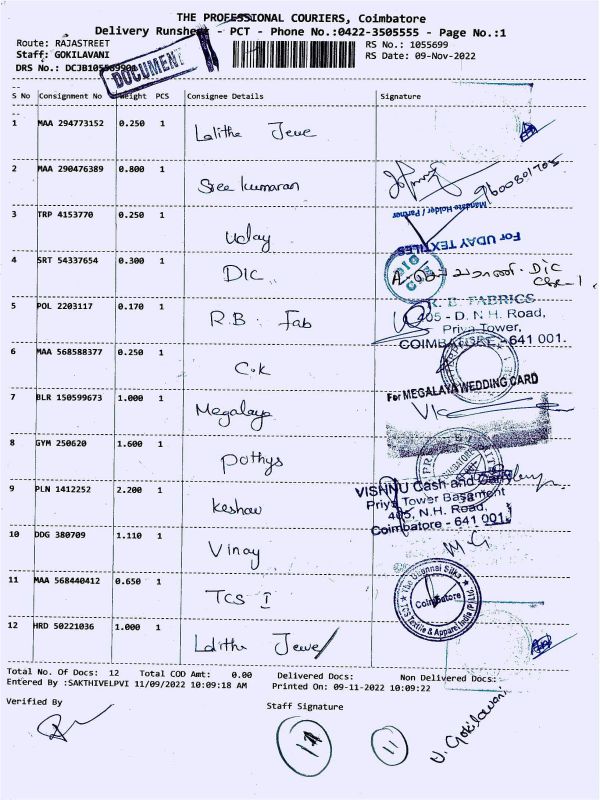 THE PROFESSIONAL COURIERS, Coimbatore
Delivery Runsheet - PCT - Phone No.:0422-3505555 - Page No.:1
Route: RAJASTREET
RS No.: 1055699
Staff: GOKILAVANI
RS Date: 09-Nov-2022
DRS No.: DCJB105569901
DOCUMENT
S No Consignment No Weight PCS Consignee Details Signature
1 MAA 294773152 0.250 1 Lalitha Jewe
2 MAA 290476389 0.800 1 Sree kumaran
9600801705
Mandate Holder / Partner
3 TRP 4153770 0.250 1 Uday
For UDAY TEXTILES
4 SRT 54337654 0.300 1 DIC
DIC CBE
DIC
5 POL 2203117 0.170 1 R.B. Fab
R. B. FABRICS
405 - D. N.H. Road,
Priya Tower,
COIMBATORE - 641 001.
6 MAA 568588377 0.250 1 C.K
7 BLR 150599673 1.000 1 Megalaya
For MEGALAYA WEDDING CARD
8 GYM 250620 1.600 1 Pothys
9 PLN 1412252 2.200 1 Keshav
VISHNU Cash and Carry
Priya Tower Basement
405, N.H. Road,
Coimbatore - 641 001.
10 DDG 380709 1.110 1 Vinay
M G
11 MAA 568440412 0.650 1 TCS I
The Chennai Silks
Coimbatore
Textile & Apparel India (P) Ltd.
12 HRD 50221036 1.000 1 Lalitha Jewe
Total No. Of Docs: 12 Total COD Amt: 0.00 Delivered Docs: Non Delivered Docs:
Entered By :SAKTHIVELPVI 11/09/2022 10:09:18 AM Printed On: 09-11-2022 10:09:22
Verified By Staff Signature
11
11
U. Gokilavani